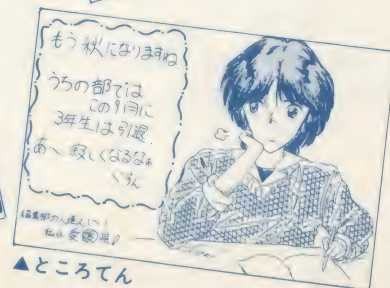 もう秋になりますね
うちの部では
この9月に
3年生は引退.
あ〜寂しくなるなぁ
ぐすん
編集部の人達え〜い
私は
▲ところてん